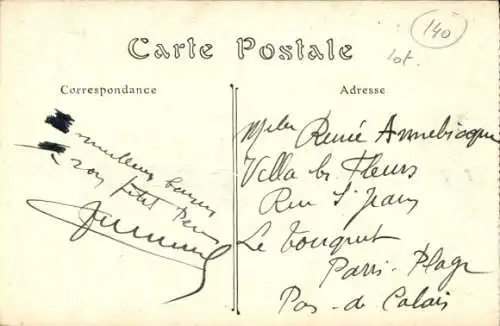 140
lot.
Carte Postale
Correspondance
Adresse
meilleurs baisers
ton petit
Renée Annebicque
Villa les Fleurs
Rue St Jean
Le Touquet
Paris-Plage
Pas-de Calais